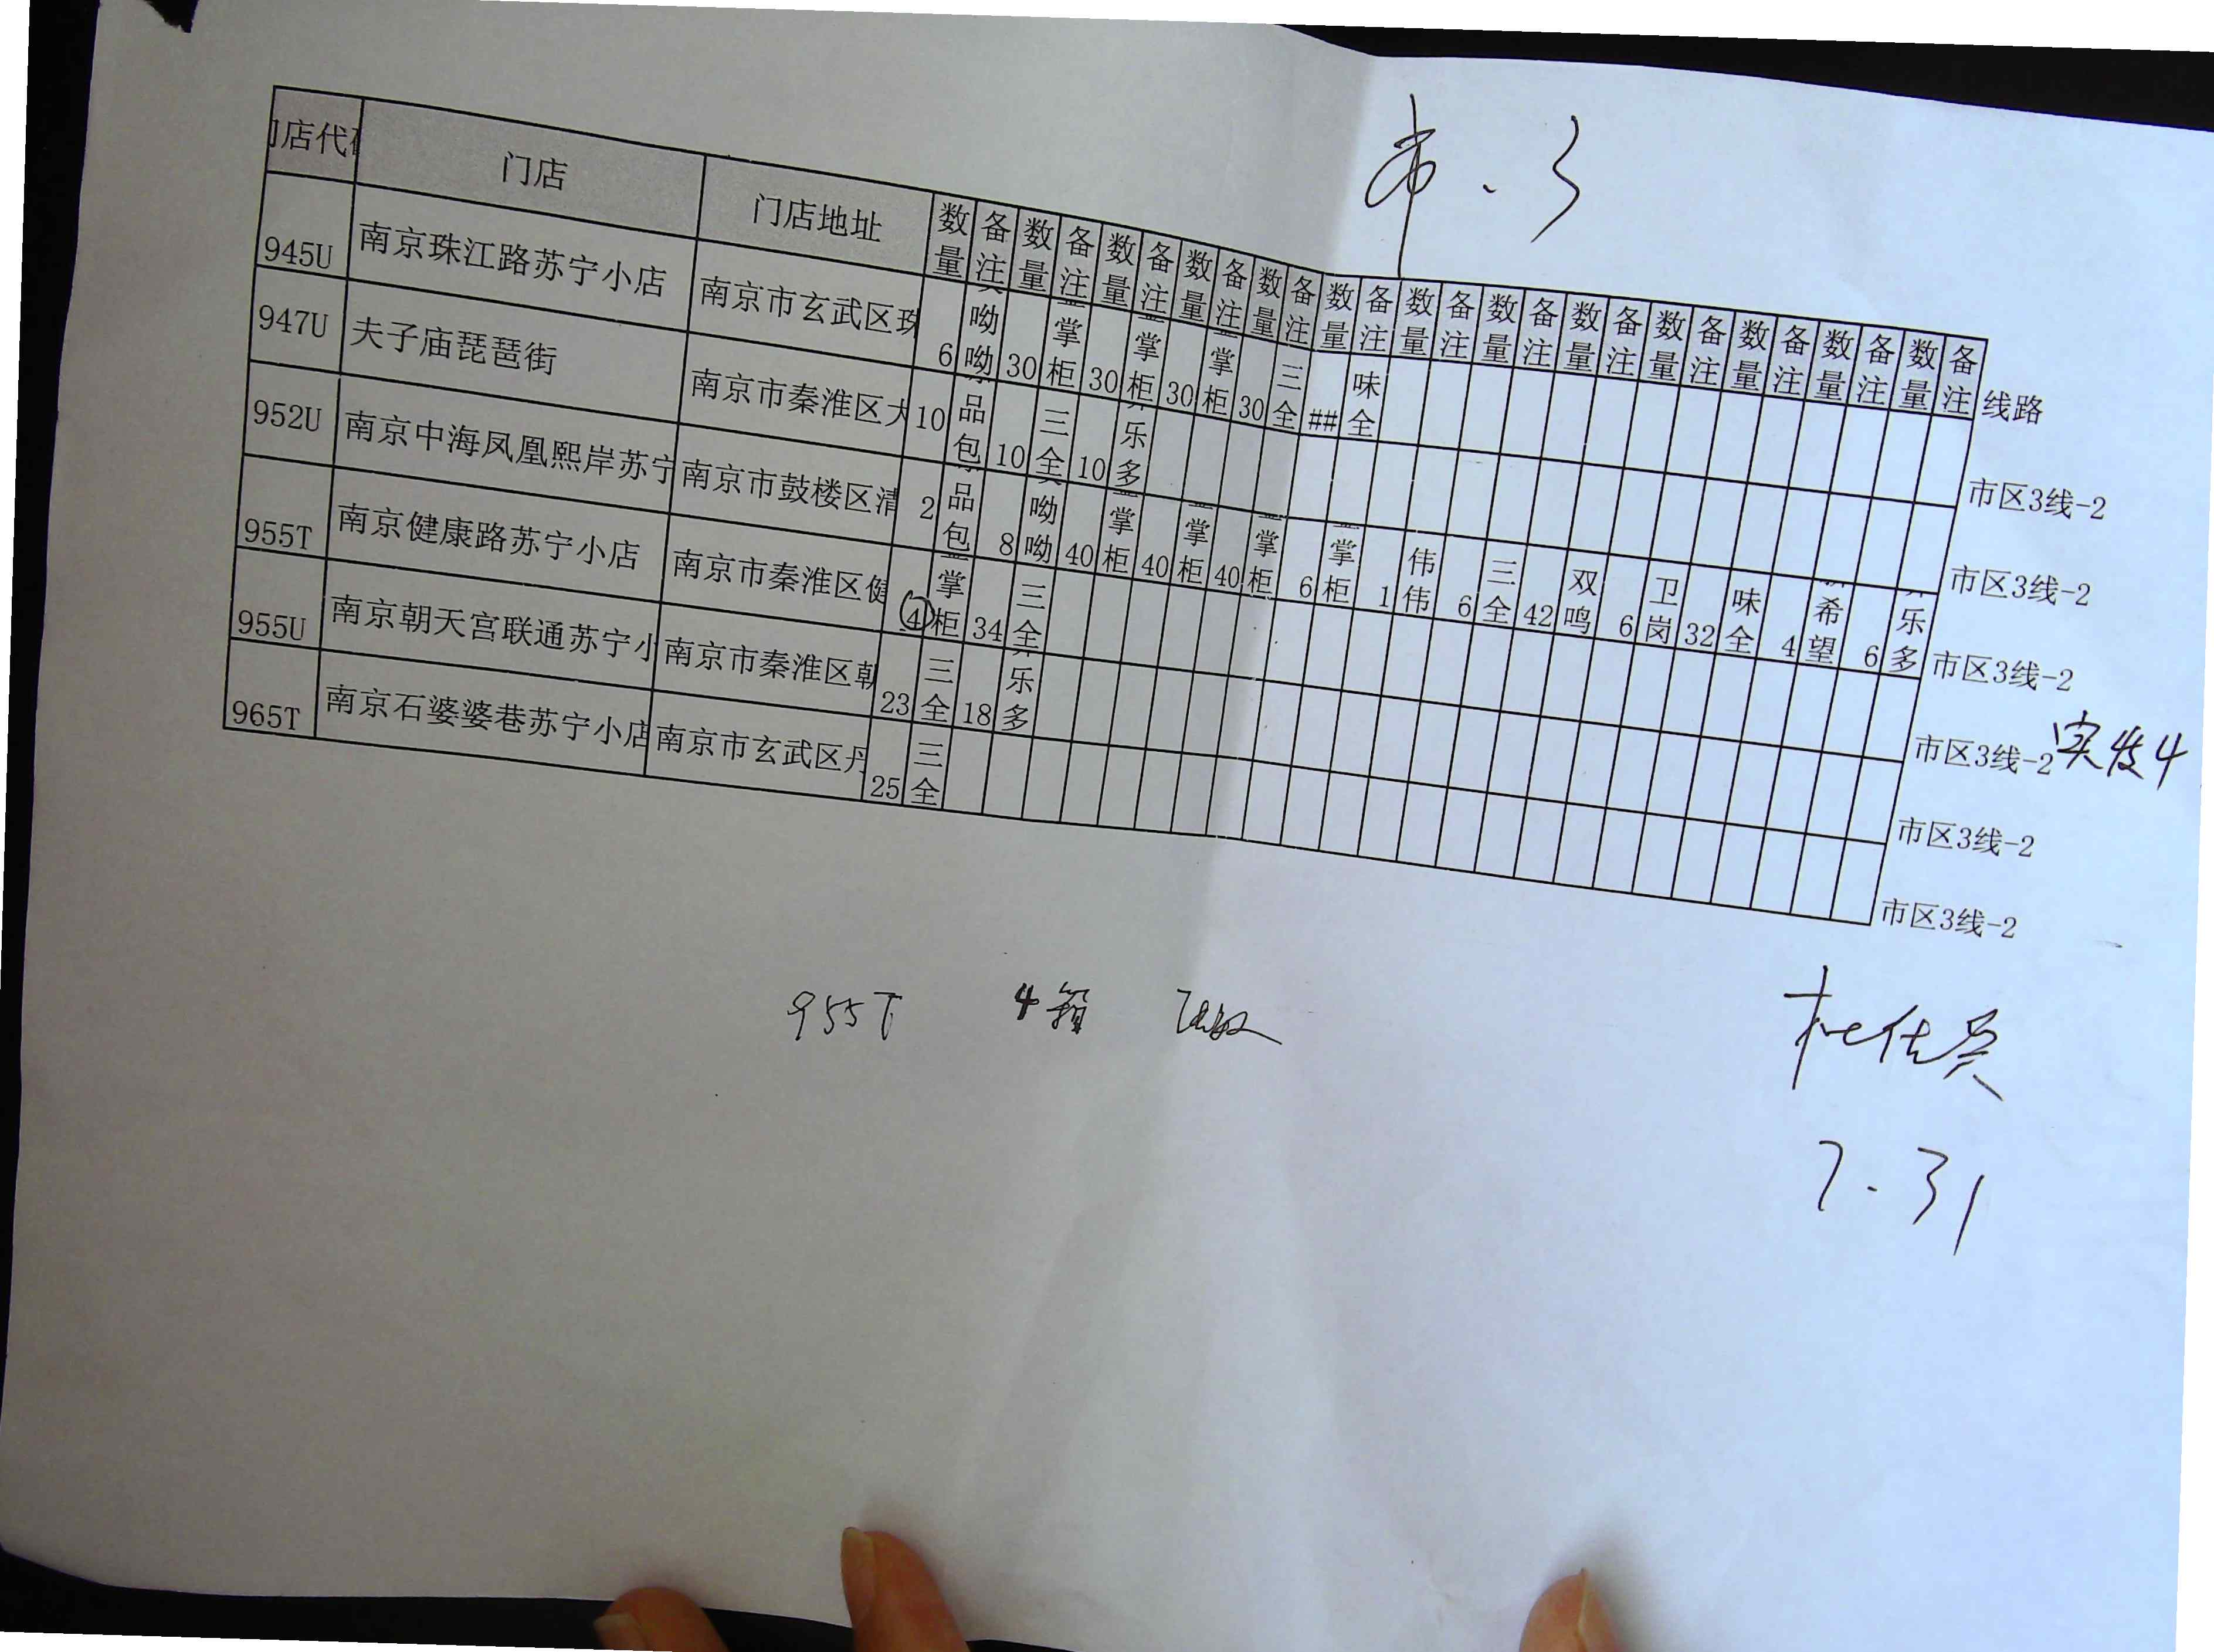 市.3
门店代码 门店 门店地址 数量 备注 数量 备注 数量 备注 数量 备注 数量 备注 数量 备注 数量 备注 数量 备注 数量 备注 数量 备注 数量 备注 数量 备注 数量 备注 线路
945U 南京珠江路苏宁小店 南京市玄武区珠 6 呦呦 30 掌柜 30 掌柜 30 掌柜 30 三全 ## 味全 市区3线-2
947U 夫子庙琵琶街 南京市秦淮区大 10 品包 10 三全 10 乐多 市区3线-2
952U 南京中海凤凰熙岸苏宁 南京市鼓楼区清 2 品包 8 呦呦 40 掌柜 40 掌柜 40 掌柜 6 掌柜 1 伟伟 6 三全 42 双鸣 6 卫岗 32 味全 4 希望 6 乐多 市区3线-2
955T 南京健康路苏宁小店 南京市秦淮区健 4 掌柜 34 三全 市区3线-2 实发4
955U 南京朝天宫联通苏宁小 南京市秦淮区朝 23 三全 18 乐多 市区3线-2
965T 南京石婆婆巷苏宁小店 南京市玄武区丹 25 三全 市区3线-2
955T 4箱
7.31